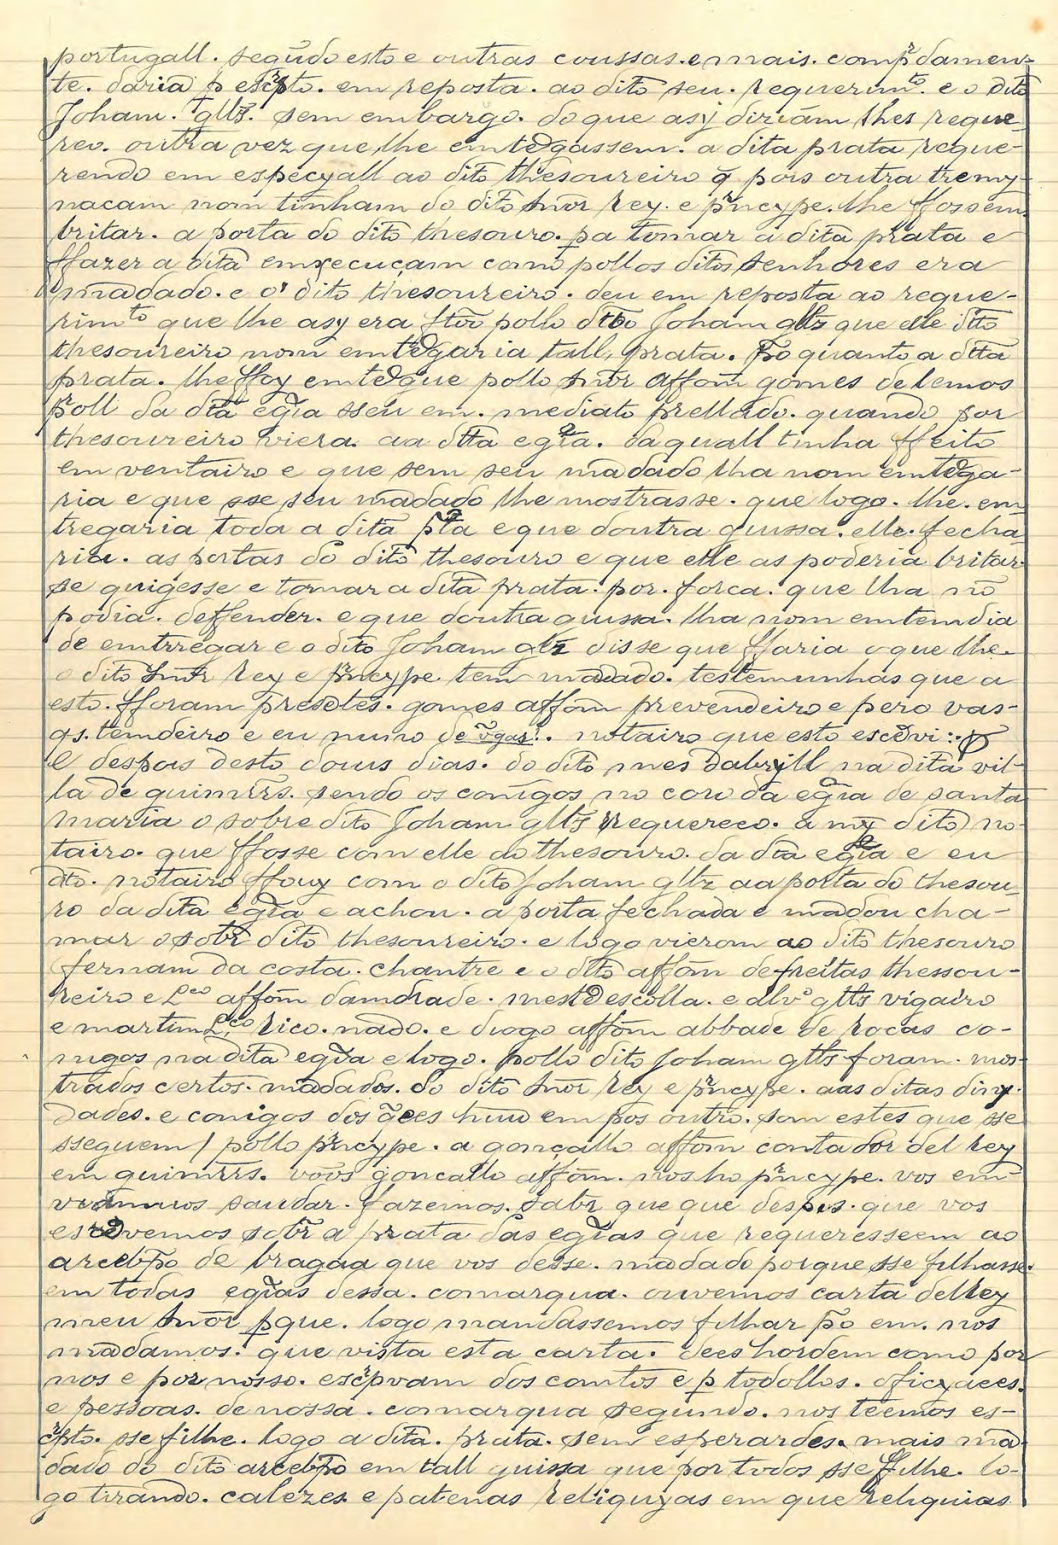 portugall. segũdo esto e outras coussas. e mais. comp̃damen-
te. daria p escp̃to. em reposta. ao dito seu. requerimto. e o dito
Joham. glz̃. sem embargo. do que asy diziam lhes reque-
reo. outra vez que lhe emtegassem. a dita prata reque-
rendo em especyall ao dito thesoureiro q̃ pois outra tremy-
nacam nom tinham do dito sñor Rey. e p̃ncype. lhe ffossem
britar. a porta do dito thesouro. pa tomar a dita prata e
ffazer a dita emxecuçam como pollos ditos senhores era
mãdado. e o dito thesoureiro. deu em reposta ao reque-
rimto que lhe asy era ffto pollo dito Joham glz que elle dito
thesoureiro nom emtegaria tall, prata. po quanto a dita
prata. lhe ffoy emtegue pollo sñor affom̃ gomes de lemos
p̃oll da dita eg̃ia sseu em. mediato prellado. quando por
thesoureiro viera. aa dita egr̃a. da quall tinha ffeito
em ventairo e que sem seu mãdado lha nom emtega-
ria e que sse seu mãdado lhe mostrasse. que logo. lhe. em
tregaria toda a dita p̃ta e que doutra guissa. elle. fecha
ria. as portas do dito thesouro e que elle as poderia britar
se quigesse e tomar a dita prata. por. forca. que lha nõ
podia. deffender. e que doutra guissa. lha nom emtemdia
de emtrregar e o dito Joham glz disse que ffaria o que lhe.
o dito sñor Rey e p̃ncype. tem mãdado. testemunhas que a
esto. fforam presētes. gomes affom̃ prevendeiro e pero vas-
qs. temdeiro e eu nuno de ṽgas. notairo que esto escevi :.
E despois desto dous dias. do dito mes dabryll na dita vil-
la de guimr̃s. sendo os conigos no coro da egr̃a de santa
maria o sobre dito Joham glz̃ requereeo. a my dito no-
tairo. que ffosse com elle ao thesouro. da dita egr̃ia e eu
dto. notairo ffouy com o dito Joham glz aa porta do thesou-
ro da dita egr̃ia e achou. a porta fechada e mãdou cha-
mar o sobr̃ dito thesoureiro. e logo vierom ao dito thesouro
fernam da costa. chantre e o dito affom̃ de freitas thessou-
reiro e Lco affom̃ damdrade. mestescolla. e alvo glz̃ vigairo
e martim Lco Rico. nado. e diogo affom̃ abbade de Rocas co-
nigos na dita egr̃ia e logo. pollo dito Joham glz̃ foram. mos-
trados certos. mãdados. do dito sñor Rey e p̃ncype. aas ditas diny-
dades. e conigos dos q̃ees huu em pos outro. som estes que sse
sseguem / pollo p̃ncype. a gonçallo affom̃ contador del Rey
em guimr̃s. voos goncallo affom̃. nos ho p̃ncype. vos em
viamuos saudar. fazemos. sabr̃ que que despis. que vos
escevemos sobr̃ a prata das egr̃ias que requeresseem ao
arcebp̃o de bragaa que vos desse. mãdado porque sse filhasse
em todas egr̃ias dessa. comarqua. ouvemos carta delRey
meu sñor pque. logo mandassemos filhar po em. nos
mãdamos. que vista esta carta. dees hordem como por
nos e por nosso. escp̃vam dos comtos e p todollos. oficyaees.
e pessoas. de nossa. comarqua segundo. nos teemos es-
cp̃to. sse filhe. logo a dita. prata. sem esperardes. mais mã-
dado do dito arcebp̃o em tall guissa que por todos sse ffilhe. lo-
go tirando. calezes e patenas Reliquyas em que reliquias